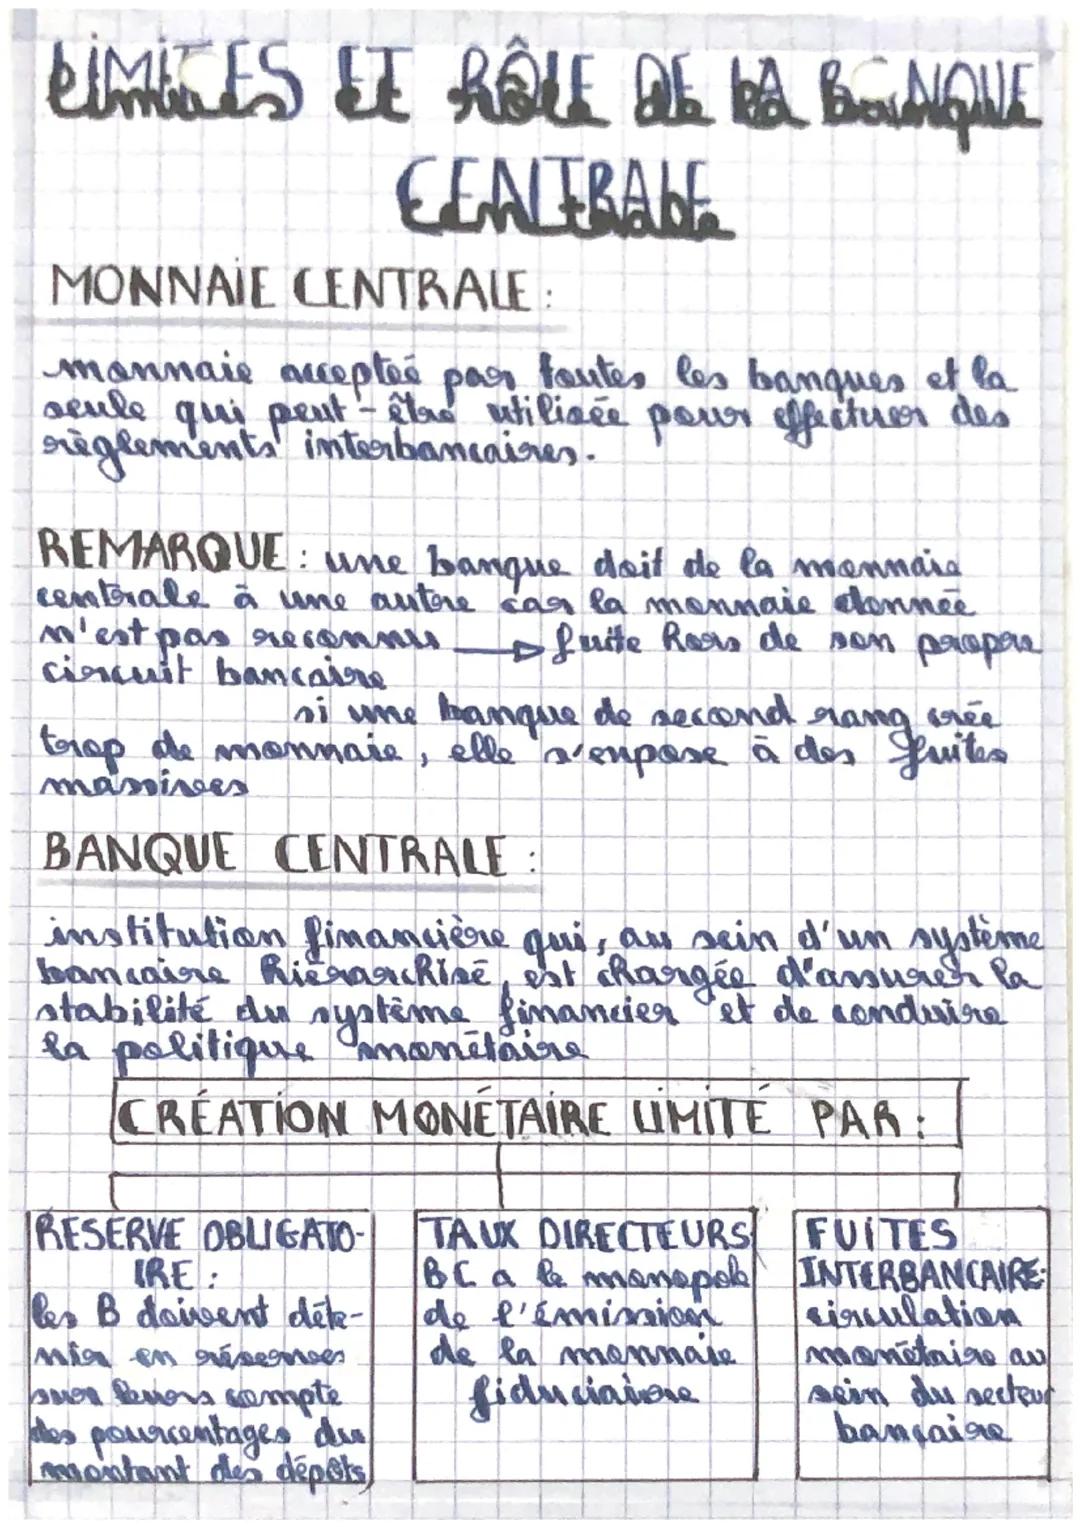 LIMITES ET RÔLE DE LA BANQUE
CENTRALE
MONNAIE CENTRALE :
monnaie acceptée par toutes les banques et la
seule qui peut-être utilisée pour effectuer des
règlements interbancaires.
REMARQUE : une banque doit de la monnaie
centrale à une autre car la monnaie donnée
n'est pas reconnus → fuite hors de son propre
circuit bancaire
si une banque de second rang crée
trop de monnaie, elle s'expose à des fuites
massives
BANQUE CENTRALE :
institution financière qui, au sein d'un système
bancaire hiérarchisé, est chargée d'assurer la
stabilité du système financier et de conduire
la politique monétaire
CRÉATION MONÉTAIRE LIMITÉ PAR :
RESERVE OBLIGATO-
IRE :
les B doivent déte-
nir en réserves
sur leurs compte
des pourcentages du
montant des dépôts
TAUX DIRECTEURS
BC a le monopole
de l'émission
de la monnaie
fiduciaire
FUITES
INTERBANCAIRE:
circulation
monétaire au
sein du secteur
bancaire